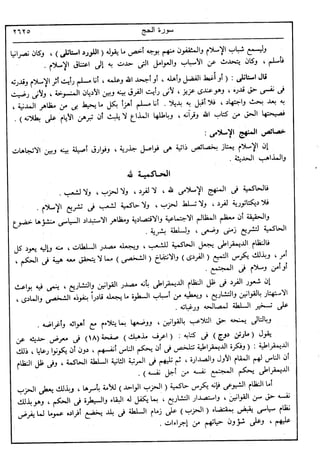 سورة الحج ٢٦٢٥
وليسمع شباب الإسلام والمثقفون منهم بوجه أخص ما يقوله ( اللورد استانلى ) ، وكان نصرانيا
فأسلم ، وكان يتحدث عن الأسباب والعوامل التى حدث به إلى اعتناق الإسلام .
قال ستانلى : ( أو أغمط الفضل وأهله ، أو أجحد الله وعلمه ، أنا مسلم رأيت أثر الإسلام وقدرته
فى نفسى حق قدره ، وهو عندى عزيز ، لأنى رأيت الفرق بينه وبين الأديان المنسوخة ، ولأنى رضيت
به بعد بحث واجتهاد ، فلا أقبل به بديلا . أنا مسلم أهزأ بكل ما يحيط بى من مظاهر المدنية ،
فصيحتها الحق من كتاب الله وقرآنه ، وباطلها المذاع لا يلبث أن تبرهن الأيام على بطلانه ) .
خصائص المنهج الإسلامى :
إن الإسلام يمتاز بخصائص ذاتية هى فواصل جذرية ، وفوارق أصيلة بينه وبين الاتجاهات
والمذاهب الحديثة .
الحاكمية لله
فالحاكمية فى المنهج الإسلامى لله ، لا لفرد ، ولا لحزب ، ولا لشعب .
فلا ديكتاتورية لفرد ، ولا تسلط لحزب ، ولا حاكمية لشعب فى تشريع الإسلام .
والحقيقة أن معظم المظالم الاجتماعية والاقتصادية ومظاهر الاستبداد السياسى منشؤها خضوع
الحاكمية لتشريع زمنى وضعى ، ولسلطة بشرية .
فالنظام الديمقراطى يجعل الحاكمية للشعب ، ويجعله مصدر السلطات ، منه وإليه يعود كل
أمر ، وبذلك يكرس النتيج ( الفردى ) والانتفاخ ( الشخصى ) مما لا يتحقق معه هيبة فى الحكم ،
أو أمن وسلام فى المجتمع .
إن شعور الفرد فى ظل النظام الديمقراطى بأنه مصدر القوانين والتشاريع ، ينمى فيه بواعث
الاستهتار بالقوانين والتشاريع ، ويعطيه من أسباب السطوة ما يجعله قادراً بنفوذه الشخصى والمادى ،
على تسخير السلطة لمصالحه ورغباته .
وبالتالى يمنحه حق التلاعب بالقوانين ، ووضعها بما يتلاءم مع أهوائه وأغراضه .
يقول ( مارتن دوج ) فى كتابه : ( اعرف مذهبك ) صفحة ( ١٨ ) فى معرض حديثه عن
الديمقراطية : ( وفكرة الديمقراطية تتلخص فى أن يحكم الناس أنفسهم ، دون أن يكونوا رعايا ، ذلك
أن الناس لهم المقام الأول والصدارة ، ثم تليهم فى المرتبة الثانية السلطة الحاكمة ، وفى ظل النظام
الديمقراطى يحكم المجتمع نفسه من أجل نفسه ) .
أما النظام الشيوعى فإنه يكرس حاكمية ( الحزب الواحد ) للأمة بأسرها ، وبذلك يعطى الحزب
نفسه حق سن القوانين ، واستصدار التشاريع ، بما يكفل له البقاء والسيطرة فى الحكم ، وهو بذلك
نظام سياسى يقبض بمقتضاه ( الحزب ) على زمام السلطة فى بلد يخضع أفراده عموما لما يفرض
عليهم ، وعلى شؤون حياتهم من إجراءات .